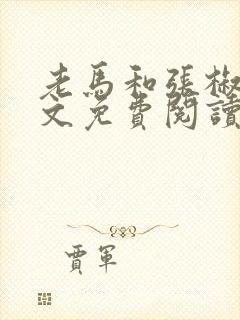 老馬和張椒
文免費閱讀
賈軍